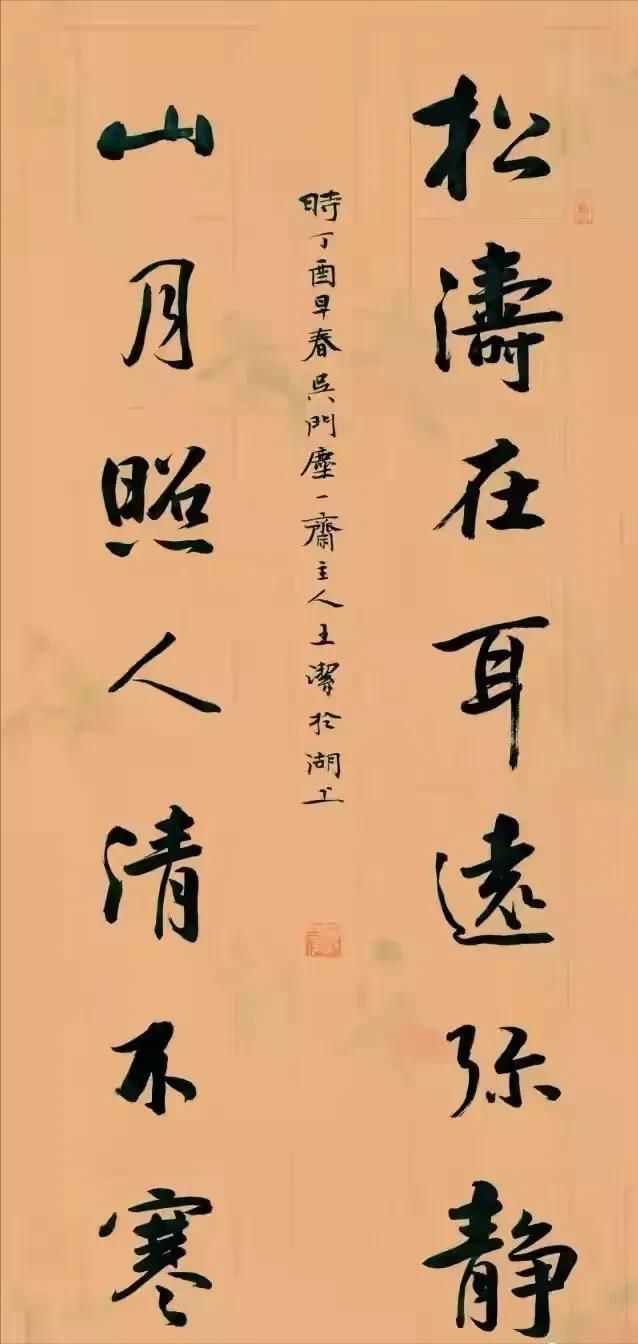 松濤在耳遠弥靜
山月照人清不寒
時丁酉早春吳門塵一齋主人王潔於湖上